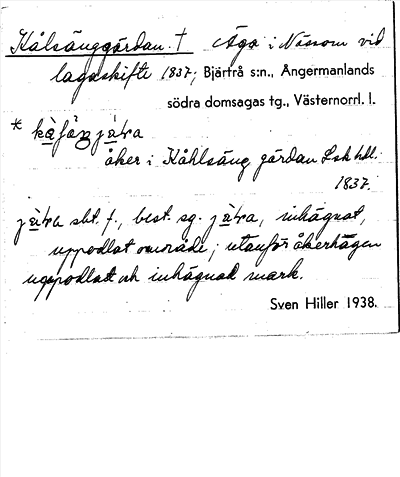 Kålsänggärdan. † Äga i Nässom vid
lagaskifte 1837; Bjärtrå s:n., Ångermanlands
södra domsagas tg., Västernorrl. l.
*
åker i Kåhlsäng gärdan Lsk hdl.
1837.
sbt. f., best. sg. inhägnat,
uppodlat område; utanför åkerhägn
uppodlad och inhägnad mark.
Sven Hiller 1938.